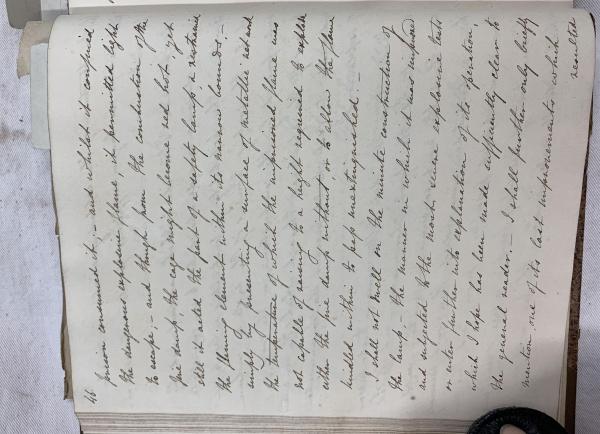 46
prison consumed it; - and whilst it confined
the dangerous explosive flame, it permitted light
to escape; - and though from the combustion of the
fire damp, the cage might become red hot, yet
still it acted the part of a safety lamp, & restrained
the flaming element within its narrow bounds; -
by presenting a surface of metallic net work
the temperature of which the imprisoned flame was
not capable of raising to a hight required to explode
either the fire damp without or to allow the flame
kindled within to pass unextinguished. -
I shall not dwell on the minute construction of
the lamp - the manner in which it was improved
and subjected to the most severe explosive tests
or enter further into explanation of its operation,
which I hope has been made sufficiently clear to
the general reader. - I shall further only briefly
mention one of its last improvements which
resulted